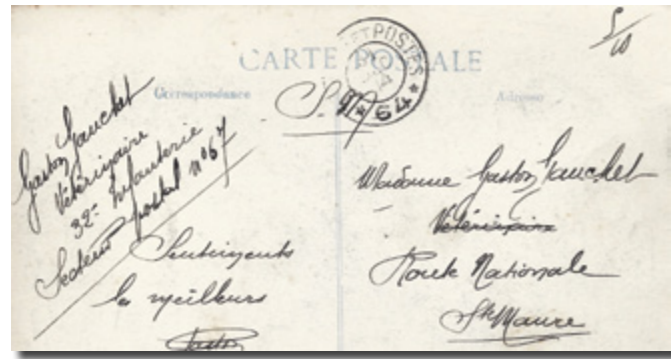 CARTE POSTALE
ET POSTES
* 64 *
5/10
Correspondance
Adresse
S. M
Gaston Gauchet
Vétérinaire
32e Infanterie
Secteur postal n° 67
Sentiments
les meilleurs
Gaston
Madame Gaston Gauchet
Vétérinaire
Route Nationale
Ste Maure